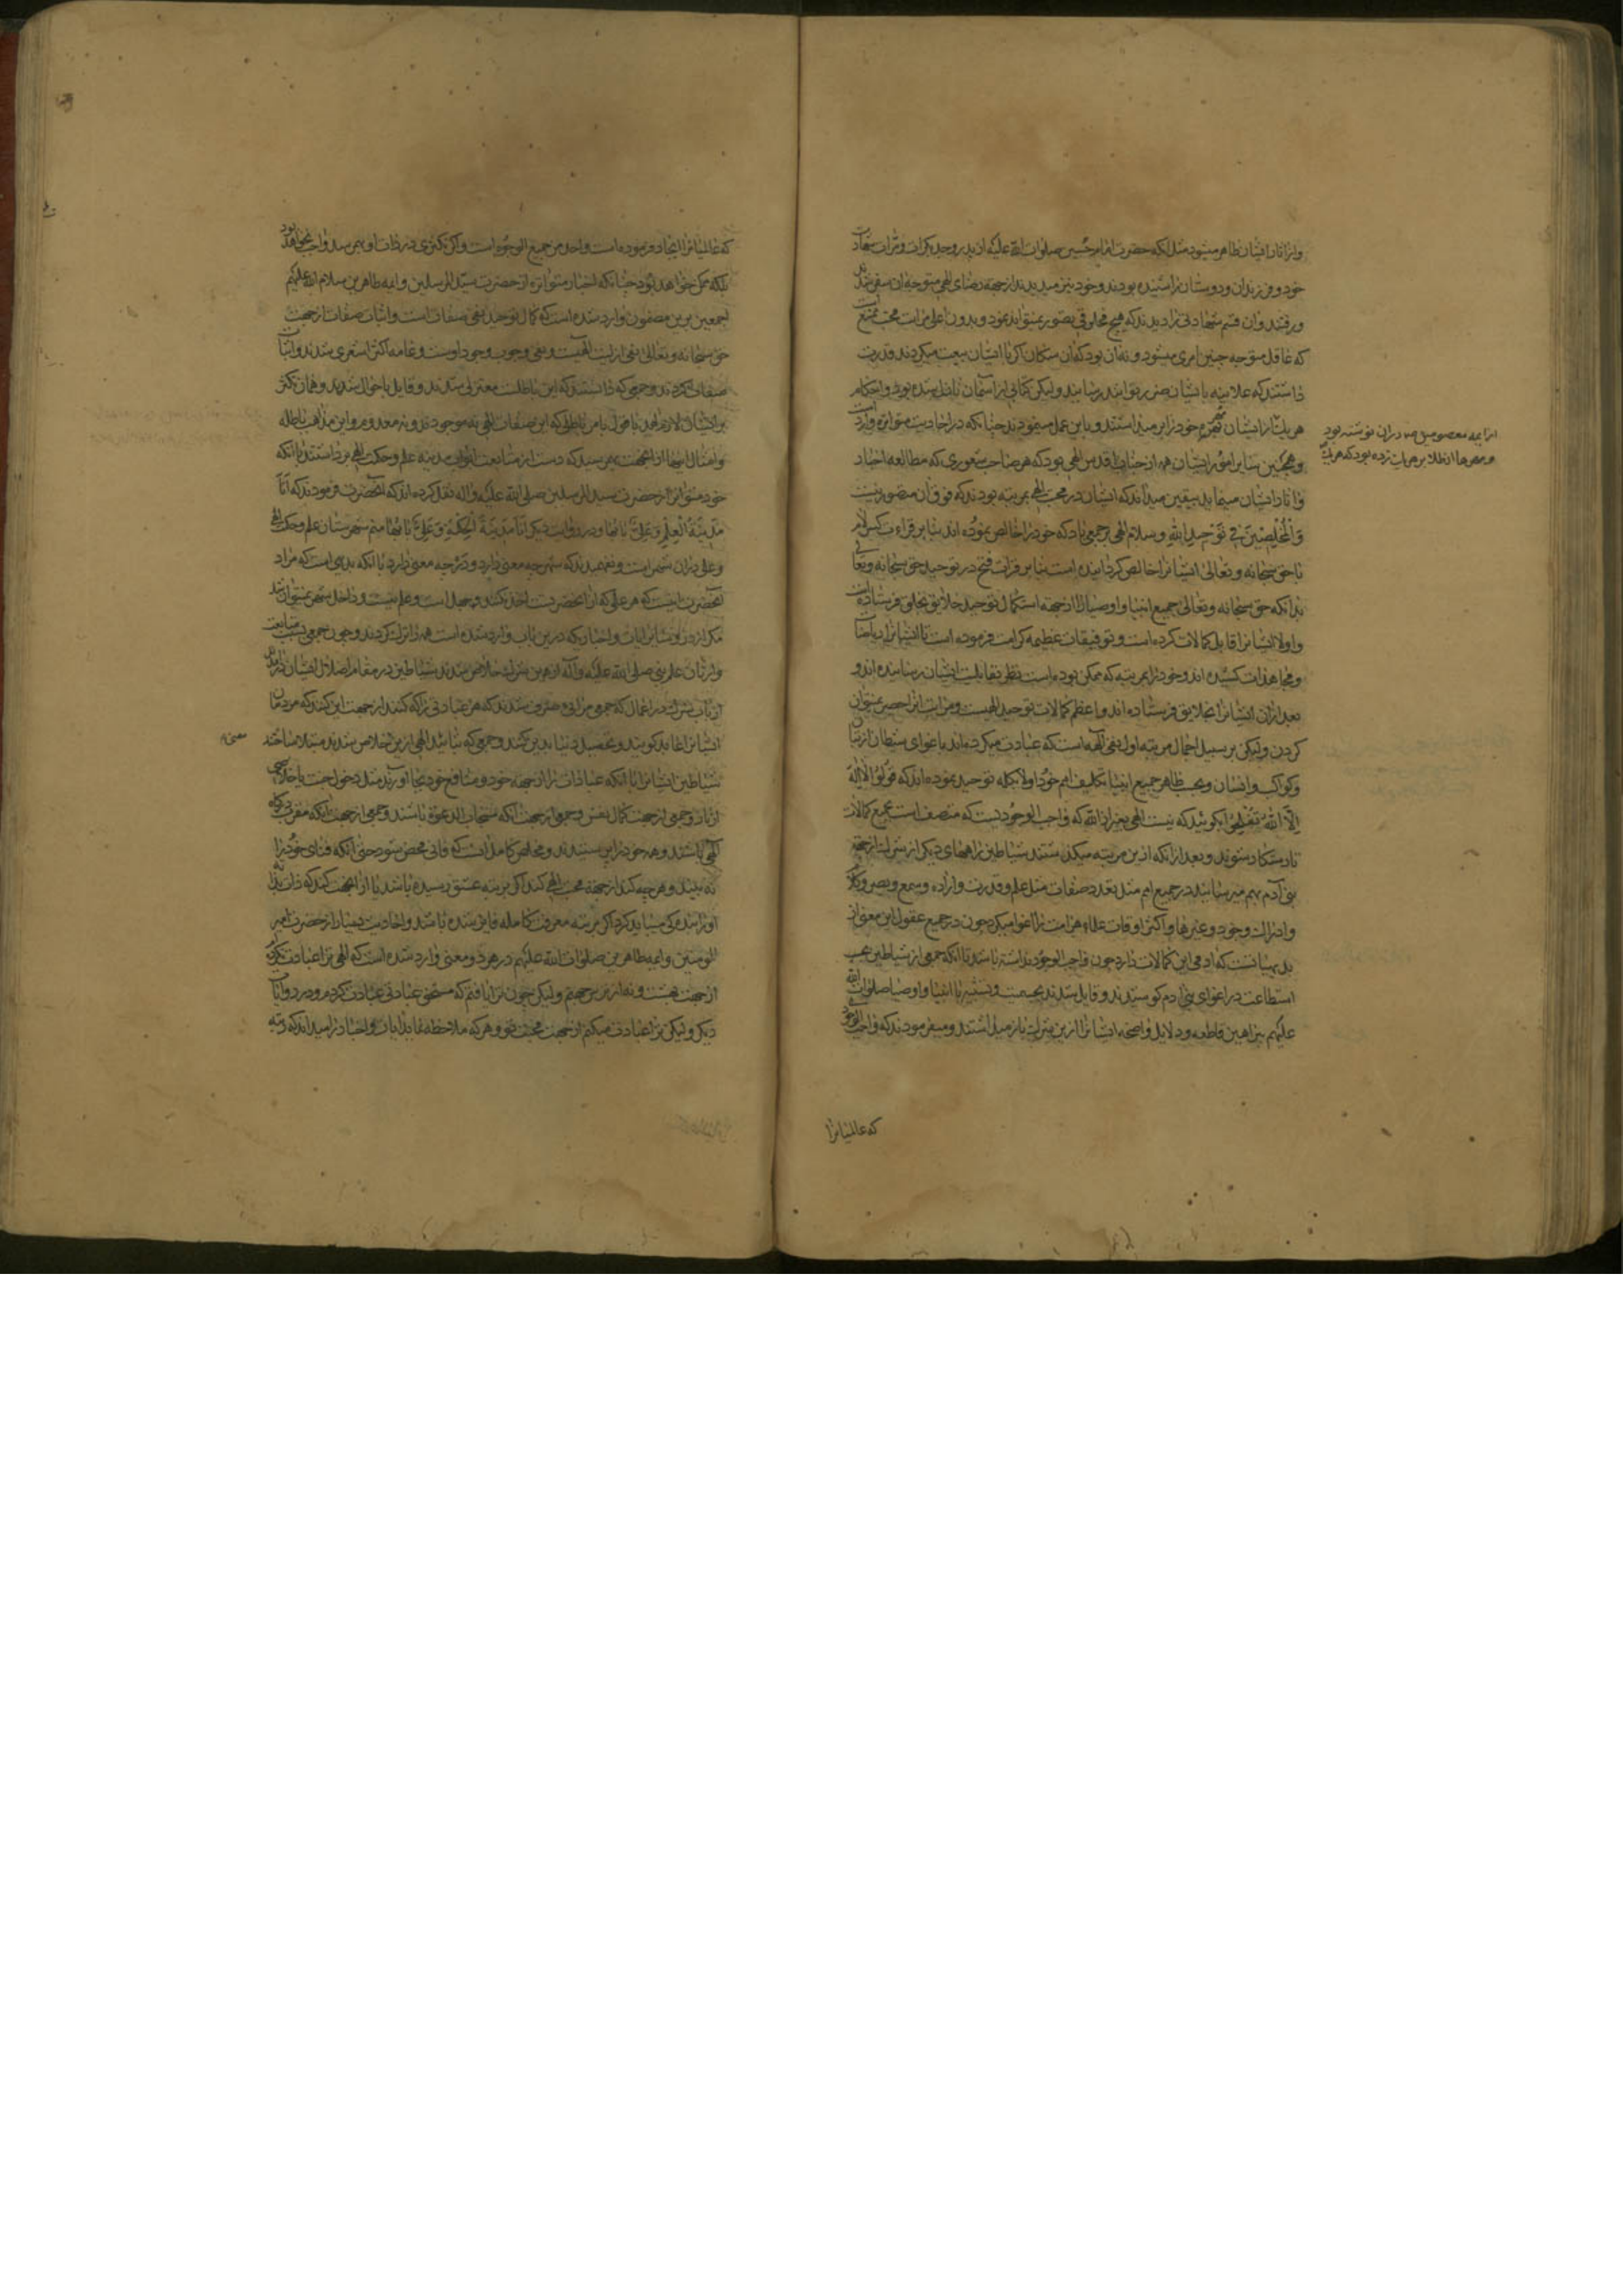 واز آثار ایشان ظاهر میشود مثل آنکه حضرت امام حسین صلوات الله علیه از پدر و جد بکرات و مرات شهادت
خود و فرزندان و دوستان را شنیده بودند و خود نیز میدیدند از جهة رضای الهی متوجه آن سفر شدند
و رفتند و آن قسم شهادتی را دیدند که هیچ مخلوقی تصور نمیتواند نمود و بدون اعلی مراتب محبت ممتنع است
که عاقل متوجه چنین امری میشود و نه آن بود که آن سکان اکر با ایشان بیعت میکردند قدرت
داشتند که علانیه بایشان ضرر توانند رسانید ولیکن کتابی از آسمان نازل شده بود و احکام
هر یک از ایشان مهر خود را بر میداشتند و باین عمل مینمودند چنانکه در احادیث متواتره وارد است
از ایمه معصومین در آن نوشته بود
و مهرها از طلا بر هر یک زده بود که هر یک
و همچنین سایر امور ایشان همه از جناب اقدس الهی بود که هر صاحب شعوری که مطالعه اخبار
و آثار ایشان مینماید بیقین میداند که ایشان در محبت الهی بمرتبه بودند که فوق آن متصور نیست
وَالْمُخْلِصِینَ فِی تَوْحِیدِ اللّٰهِ و سلام الهی بر جمعی باد که خود را خالص نموده اند بنا بر قراءت کسر لام
با حق سبحانه و تعالی ایشانرا خالص کردانیده است بنا بر قراءت فتح در توحید حق سبحانه و تعالی
بدانکه حق سبحانه و تعالی جمیع انبیا و اوصیا را از جهة استکمال توحید خلایق بخلق فرستاده است
و اولا ایشانرا قابل کمالات کرده است و توفیقات عظیمه کرامت فرموده است تا ایشان از ریاضات
و مجاهدات کشیده اند و خود را بمرتبه که ممکن بوده است نظر بقابلیت ایشان رسانیده اند و
بعد از آن ایشانرا بخلایق فرستاده اند و اعظم کمالات توحید الهیست و مراتب انرا حصر نمیتوان
کردن ولیکن بر سبیل اجمال مرتبه اول نفی آلهه است که عبادت میکرده‌اند باغوای شیطان از بتان
و کواکب و انسان و بحسب ظاهر جمیع انبیا تکلیف امم خود اولا بکلمه توحید نموده اند که قُولُوا لَا اِلٰهَ
اِلَّا اللّٰهُ تُفْلِحُوا بکوئید که نیست الهی بغیر از الله که واجب الوجود یست که متصف است بجمیع کمالات
تا رستکار شوید و بعد از آنکه ازین مرتبه میکذشتند شیاطین راههای دیکر از شرک از جهة
بنی آدم بهم میرسانیدند در جمیع امم مثل تعدد صفات مثل علم و قدرت و اراده و سمع و بصر و کلام
و ادراک و وجود و غیرها و اکثر اوقات علماء هر امت را اغوا میکرد چون در جمیع عقول این معنی از
بدیهیاتست که آدمی این کمالات دارد چون واجب الوجود نداشته باشد تا آنکه جمعی از شیاطین بحسب
استطاعت در اغوای بنی آدم کوشیدند و قایل شدند بجسمیت و تشبیه تا انبیا و اوصیا صلوات الله
علیهم ببراهین قاطعه و دلایل واضحه ایشانرا ازین شرک باز میداشتند و میفرمودند که واجب الوجود
که عالمیانرا
که عالمیانرا ایجاد فرموده است واحد من جمیع الوجوه است و اکر تکثری در ذات او بهم رسد واجب نخواهد بود
بلکه ممکن خواهد بود چنانکه اخبار متواتره از حضرت سید المرسلین و ائمه طاهرین سلام الله علیهم
اجمعین برین مضمون وارد شده است که کمال توحید نفی صفات است و اثبات صفات از جهت
حق سبحانه و تعالی نفی ازلیت الهیست و نفی وجوب وجود اوست و عامه اکثر اشعری شدند و اثبات
صفات کردند و جمعی که دانستند که این باطلست معتزلی شدند و قایل باحوال شدند و همان تکثر
بر ایشان لازم آمد با قول بامر باطلی که این صفات الهی نه موجودند و نه معدوم و این مذاهب باطله
و امثال اینها از آن جهت بهم رسید که دست از متابعت ابواب مدینه علم و حکمت الهی برداشتند با آنکه
خود متواترا از حضرت سید المرسلین صلی الله علیه و اله نقل کرده اند که آنحضرت فرمودند که اَنَا
مَدِینَةُ الْعِلْمِ وَ عَلِیٌّ بَابُهَا و در روایت دیکر اَنَا مَدِینَةُ الْحِکْمَةِ وَ عَلِیٌّ بَابُهَا منم شهرستان علم و حکمت الهی
و علی در آن شهر است و نفهمیدند که شهر چه معنی دارد و در چه معنی دارد با آنکه بدیهی است که مراد
آنحضرت اینست که هر علمی که از آنحضرت اخذ نکنند و جهل است و علم نیست و داخل شهر نمیتوان شد
مکر از در و سایر آیات و اخبار که درین باب وارد شده است همه را ترک کردند و چون جمعی بسبب متابعت
وارثان علم نبی صلی الله علیه و آله ازین شرک خلاص شدند شیاطین در مقام اضلال ایشان درآمدند
از باب شرک در اعمال که جمعی مرائی و مشرک شدند که هر عبادتی را که کنند از جهت این کنند که مردمان
ایشانرا عابد کویند و تحصیل دنیا بدین کنند و جمعی که بتائید الهی ازین خلاص شدند مبتلا ساختند
شیاطین ایشانرا بانکه عبادات را از جهة خود و منافع خود بجا آورند مثل دخول جنت یا خلاصی
از نار و جمعی از جهت کمال نفس و جمعی از جهت آنکه مستجاب الدعوة باشند و جمعی از جهت آنکه مقرب درکاه
الهی باشند و همه خود را می پرستیدند و مخلص کامل آنست که فانی محض شود حتی آنکه فنای خود را
نه بیند و هر چه کند از جهة محبت الهی کند اکر بمرتبه عشق رسیده باشد یا از آن جهت کند که ذات
او را بندکی میباید کرد اکر بمرتبه معرفت کامله فایز شده باشد و احادیث بسیار از حضرت امیر
المومنین و ایمه طاهرین صلوات الله علیهم در هر دو معنی وارد شده است که الهی ترا عبادت نکردم
از جهت بهشت و نه از ترس جهنم ولیکن چون ترا یافتم که مستحق عبادتی عبادت کردم و در روایات
دیکر ولیکن ترا عبادت میکنم از جهت محبت تو و هر که ملاحظه نماید آیات و اخبار را میداند که رتبه